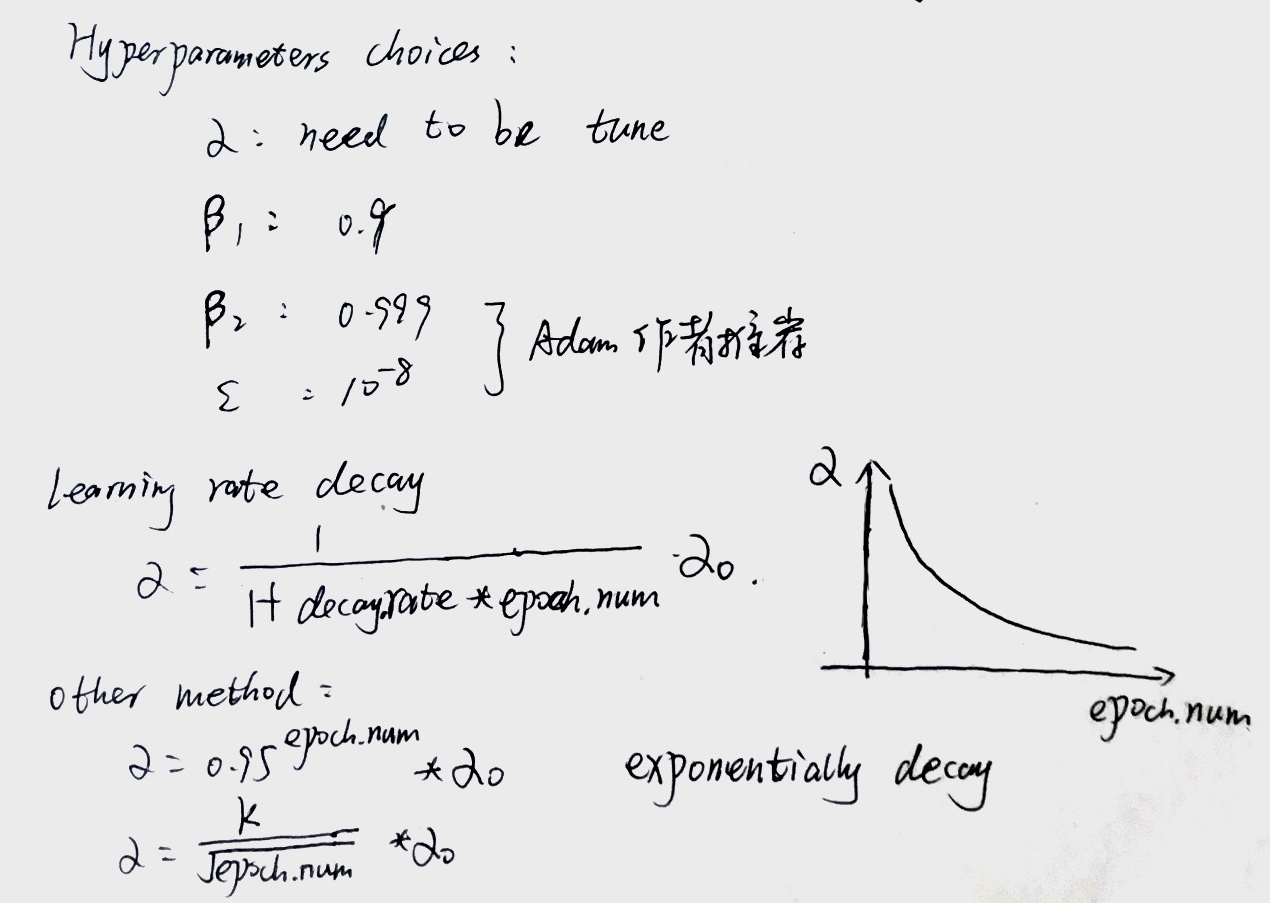 Hyperparameters choices :
α : need to be tune
β₁ : 0.9
β₂ : 0.999
ε : 10⁻⁸
} Adam 作者推荐
Learning rate decay
α = 1 / (1+ decay.rate * epoch.num) · α₀ .
α
epoch.num
other method :
α = 0.95^epoch.num * α₀
exponentially decay
α = k / √epoch.num * α₀